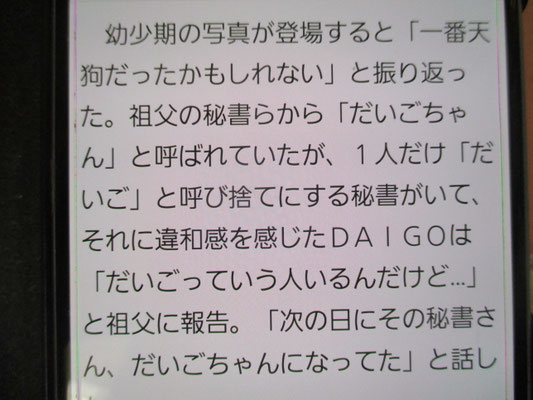 幼少期の写真が登場すると「一番天
狗だったかもしれない」と振り返っ
た。祖父の秘書らから「だいごちゃ
ん」と呼ばれていたが、１人だけ「だ
いご」と呼び捨てにする秘書がいて、
それに違和感を感じたＤＡＩＧＯは
「だいごっていう人いるんだけど…」
と祖父に報告。「次の日にその秘書さ
ん、だいごちゃんになってた」と話し